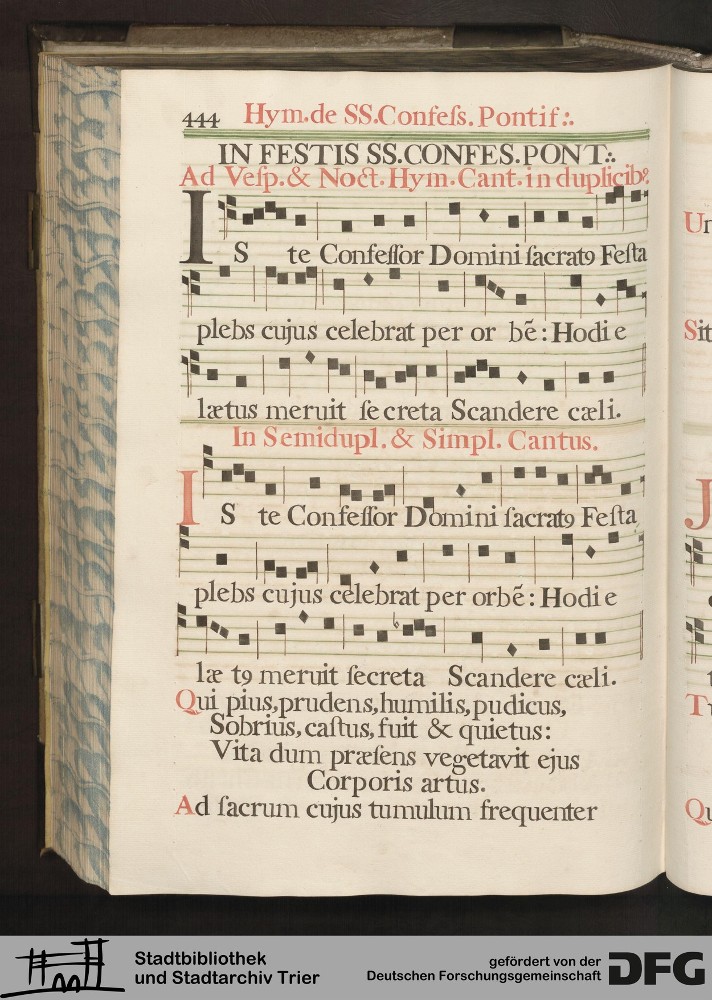 444 Hym.de SS.Confeſs.Pontif:.
IN FESTIS SS.CONFES.PONT:.
Ad Veſp.& Noct.Hym.Cant.in duplicibꝰ.
IS te Confeſſor Domini ſacratꝰ Feſta
plebs cujus celebrat per or bẽ: Hodi e
lætus meruit ſe creta Scandere cæli.
In Semidupl.& Simpl. Cantus.
IS te Confeſſor Domini ſacratꝰ Feſta
plebs cujus celebrat per orbẽ: Hodi e
læ tꝰ meruit ſecreta Scandere cæli.
Qui pius, prudens, humilis, pudicus,
Sobrius, caſtus, fuit & quietus:
Vita dum præſens vegetavit ejus
Corporis artus.
Ad ſacrum cujus tumulum frequenter
Sit
Qu
Stadtbibliothek
und Stadtarchiv Trier
gefördert von der
Deutschen Forschungsgemeinschaft
DFG